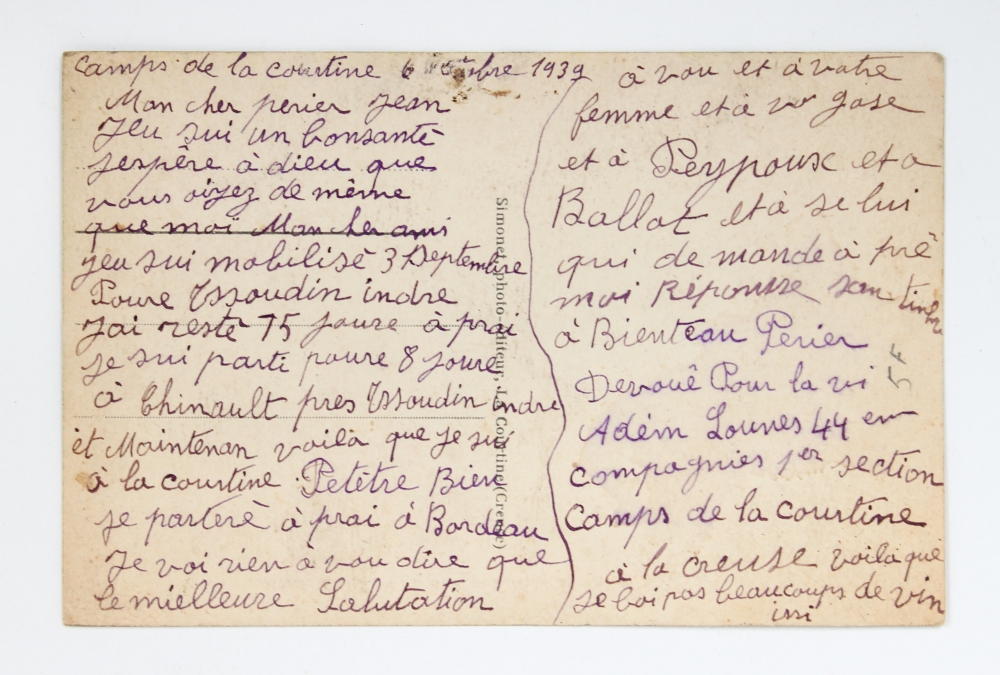 Camps de la courtine 6 1939
Mon cher perier Jean
Jeu sui un bonsanté
Jespère à dieu que
vous oiyez de même
que moi Mon cher ami
yeu sui mobilisé 3 Septembre
Poure Issoudin indre
Jai resté 15 joure à prai
je sui parti poure 8 joure
à Chinault pres Issoudin indre
et Maintenan voilà que je sui
à la courtine Petêtre Bien
je parterè à prai à Bordeau
Je voi rien à vou dire que
le mielleure Salutation
à vou et à votre
femme et à vo gose
et à Peypoux et a
Ballot et à se lui
qui de mande à prê
moi Réponsse san timbre
à Bienteau Perier
Devouê Pour la vi
Adém Lounes 44 em
compagnies 1er section
Camps de la Courtine
à la creuse voilà que
se boi pas beaucoups de vin
issi
5 F
Simonet, photo-éditeur, La Courtine (Creuse)